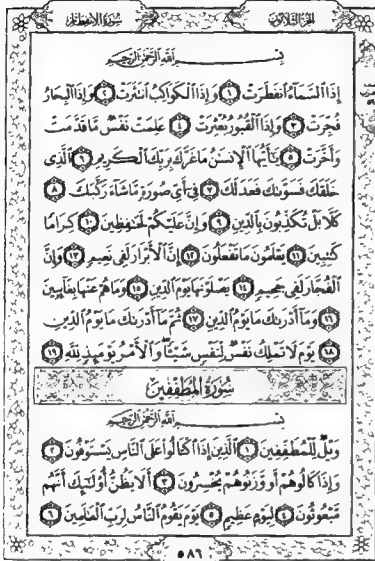 الجزء الثلاثون
سورة الانفطار
بسم الله الرحمن الرحيم
إِذَا ٱلسَّمَآءُ ٱنفَطَرَتْ ١ وَإِذَا ٱلْكَوَاكِبُ ٱنتَثَرَتْ ٢ وَإِذَا ٱلْبِحَارُ
فُجِّرَتْ ٣ وَإِذَا ٱلْقُبُورُ بُعْثِرَتْ ٤ عَلِمَتْ نَفْسٌ مَّا قَدَّمَتْ
وَأَخَّرَتْ ٥ يَٰٓأَيُّهَا ٱلْإِنسَٰنُ مَا غَرَّكَ بِرَبِّكَ ٱلْكَرِيمِ ٦ ٱلَّذِى
خَلَقَكَ فَسَوَّىٰكَ فَعَدَلَكَ ٧ فِىٓ أَىِّ صُورَةٍ مَّا شَآءَ رَكَّبَكَ ٨
كَلَّا بَلْ تُكَذِّبُونَ بِٱلدِّينِ ٩ وَإِنَّ عَلَيْكُمْ لَحَٰفِظِينَ ١٠ كِرَامًا
كَٰتِبِينَ ١١ يَعْلَمُونَ مَا تَفْعَلُونَ ١٢ إِنَّ ٱلْأَبْرَارَ لَفِى نَعِيمٍ ١٣ وَإِنَّ
ٱلْفُجَّارَ لَفِى جَحِيمٍ ١٤ يَصْلَوْنَهَا يَوْمَ ٱلدِّينِ ١٥ وَمَا هُمْ عَنْهَا بِغَآئِبِينَ
١٦ وَمَآ أَدْرَىٰكَ مَا يَوْمُ ٱلدِّينِ ١٧ ثُمَّ مَآ أَدْرَىٰكَ مَا يَوْمُ ٱلدِّينِ
١٨ يَوْمَ لَا تَمْلِكُ نَفْسٌ لِّنَفْسٍ شَيْـًٔا وَٱلْأَمْرُ يَوْمَئِذٍ لِّلَّهِ ١٩
سُورَةُ المُطَفِّفِينَ
بسم الله الرحمن الرحيم
وَيْلٌ لِّلْمُطَفِّفِينَ ١ ٱلَّذِينَ إِذَا ٱكْتَالُوا۟ عَلَى ٱلنَّاسِ يَسْتَوْفُونَ ٢
وَإِذَا كَالُوهُمْ أَو وَّزَنُوهُمْ يُخْسِرُونَ ٣ أَلَا يَظُنُّ أُو۟لَٰٓئِكَ أَنَّهُم
مَّبْعُوثُونَ ٤ لِيَوْمٍ عَظِيمٍ ٥ يَوْمَ يَقُومُ ٱلنَّاسُ لِرَبِّ ٱلْعَٰلَمِينَ ٦
٥٨٦